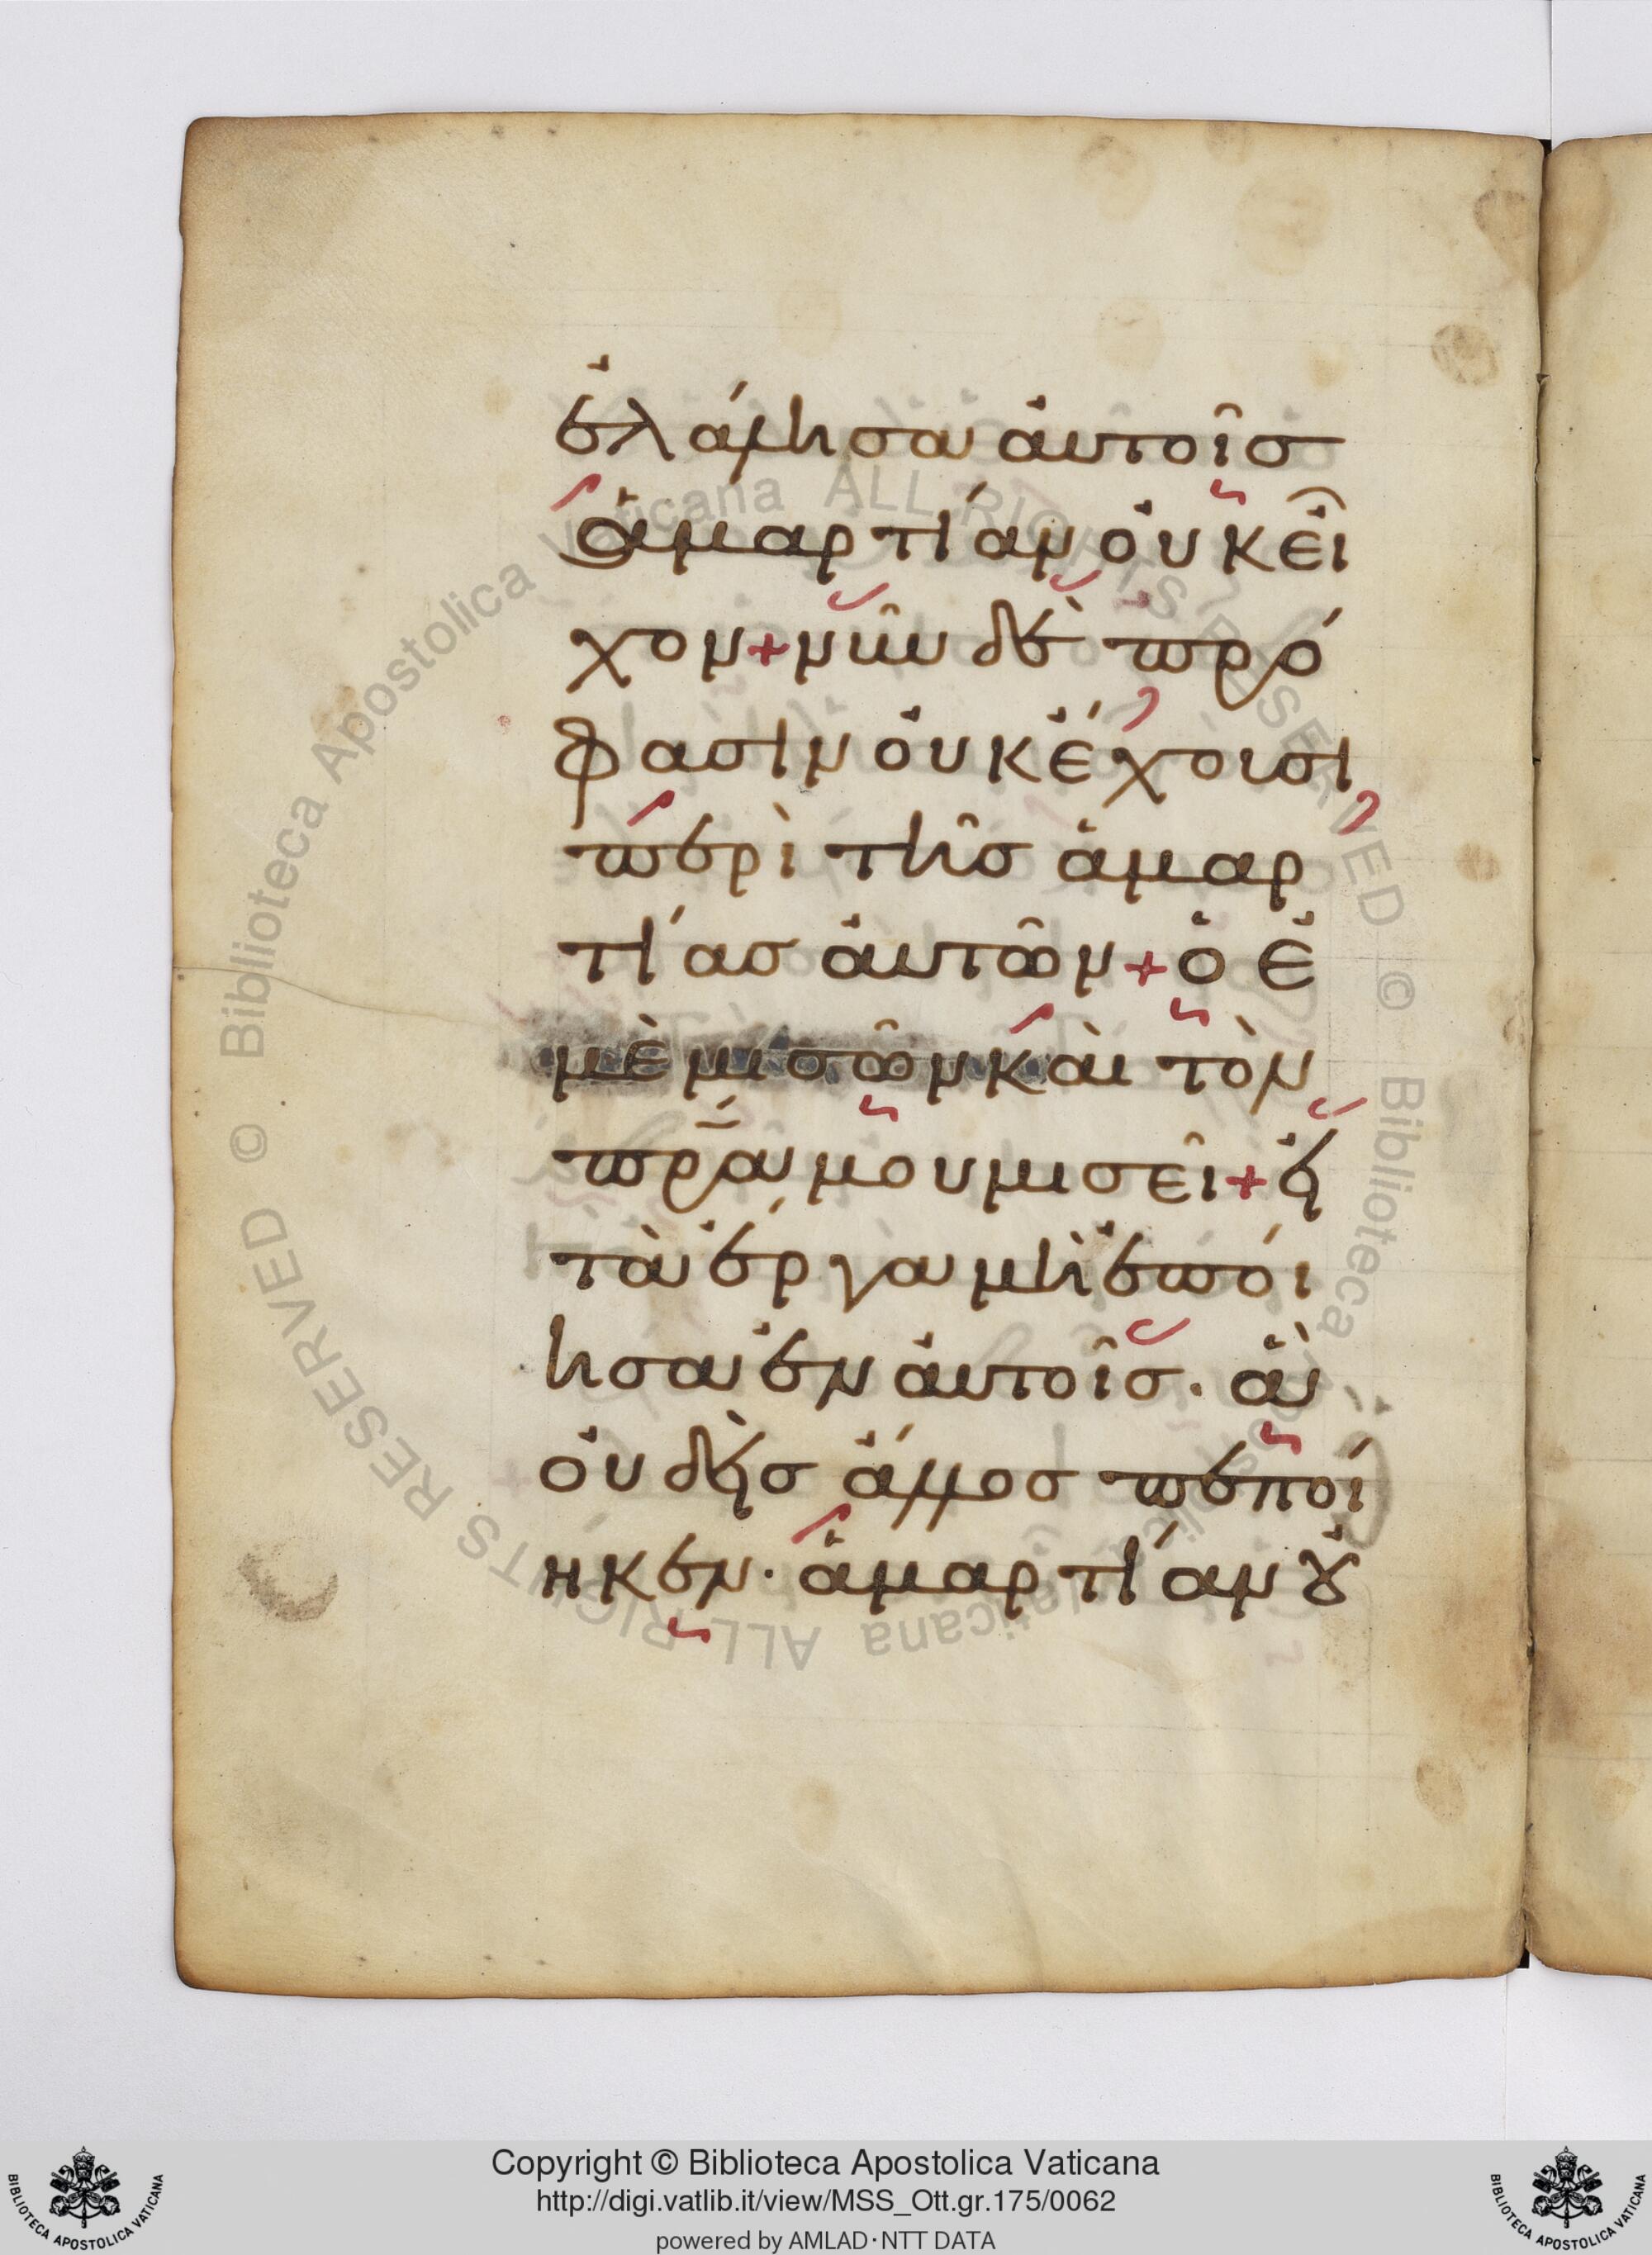 ἐλάλησα αὐτοῖσ
ἁμαρτίαν οὐκ εἶ
χον + νῦν δὲ πρό
φασιν οὐκ ἔχουσι
περὶ τῆσ ἁμαρ
τίασ αὐτῶν + ὁ ἐ
μὲ μισῶν καὶ τὸν
πρ̅α μου μισεῖ + εἰ
τὰ ἔργα μὴ ἐποί
ησα ἐν αὐτοῖσ. ἃ
οὐδεὶσ ἄλλοσ πεποί
ηκεν· ἁμαρτίαν οὐ
© Biblioteca Apostolica Vaticana ALL RIGHTS RESERVED © Biblioteca Apostolica Vaticana ALL RIGHTS RESERVED
Copyright © Biblioteca Apostolica Vaticana
http://digi.vatlib.it/view/MSS_Ott.gr.175/0062
powered by AMLAD·NTT DATA
BIBLIOTECA APOSTOLICA VATICANA
BIBLIOTECA APOSTOLICA VATICANA